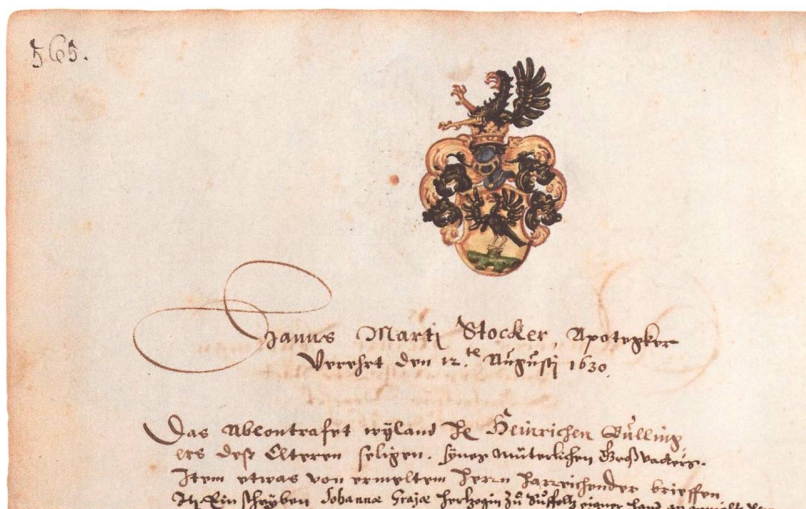 565.
Hanns Marti Stocker, Apotegker
Verehrt den 12.te Augustj 1630.
Das Abcontrafet wyland He Heinrichen Bulling
ers deß Elteren seligen. synes müterlichen Großvatters.
Item etwas von ermeltem Herrn harreichender brieffen
It. Ein schryben Johannæ Grajæ Hertzogin zu Suffolck eigner hand